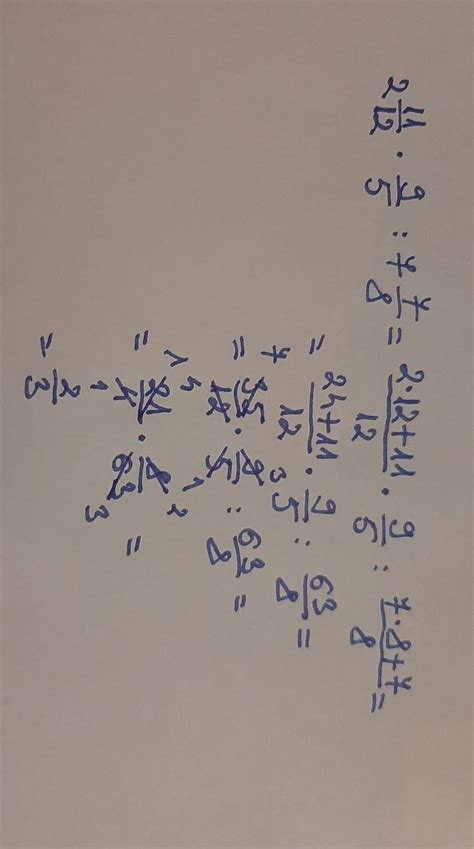 2 11/12 · 9/5 : 7 7/8 = 2·12+11/12 · 9/5 : 7·8+7/8 =
= 24+11/12 · 9/5 : 63/8 =
= 7 35/12 4 · 9 3/5 1 : 63/8 =
= 1 21/4 1 · 8 2/63 3 =
= 2/3